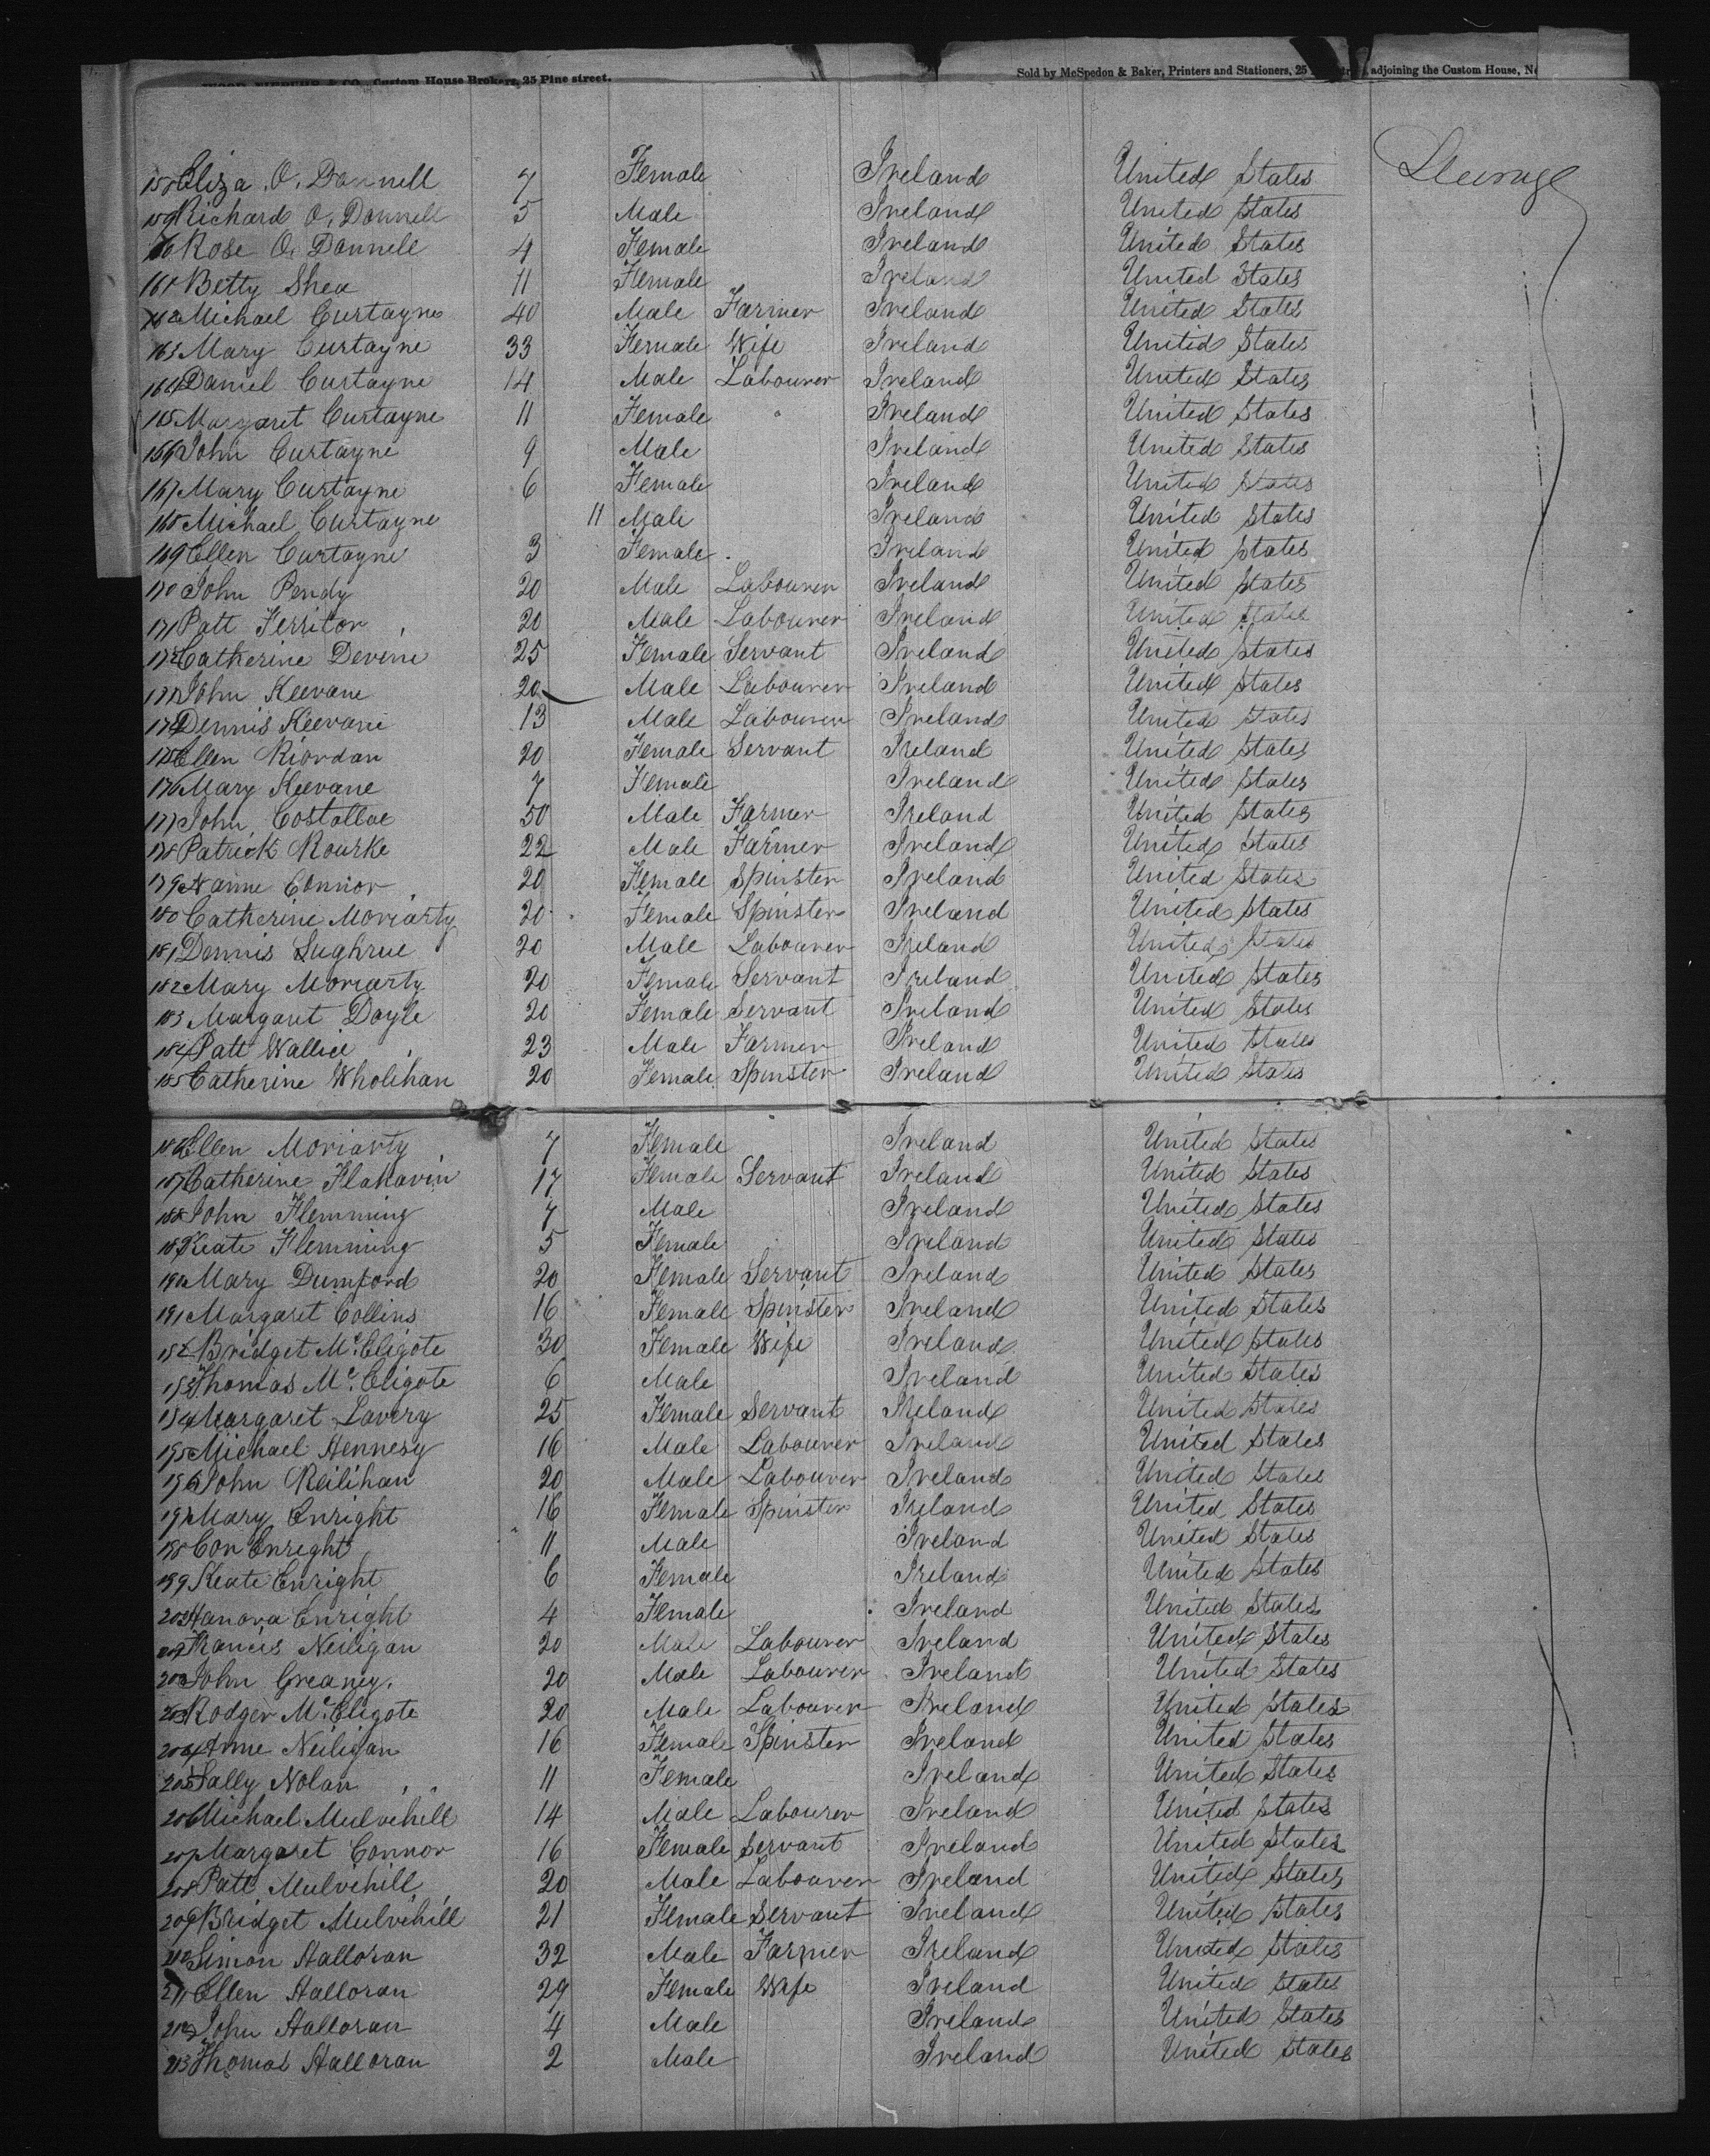 Custom House Brokers, 25 Pine street.
Sold by McSpedon & Baker, Printers and Stationers, 25 adjoining the Custom House,
158 Eliza O. Donnell 7 Female Ireland United States Steerage
159 Richard O. Donnell 5 Male Ireland United States
160 Rose O. Donnell 4 Female Ireland United States
161 Betty Shea 11 Female Ireland United States
162 Michael Curtayne 40 Male Farmer Ireland United States
163 Mary Curtayne 33 Female Wife Ireland United States
164 Daniel Curtayne 14 Male Labourer Ireland United States
165 Margaret Curtayne 11 Female Ireland United States
166 John Curtayne 9 Male Ireland United States
167 Mary Curtayne 6 Female Ireland United States
168 Michael Curtayne 11 Male Ireland United States
169 Ellen Curtayne 3 Female Ireland United States
170 John Prudy 20 Male Labourer Ireland United States
171 Patt Ferritor 20 Male Labourer Ireland United States
172 Catherine Devine 25 Female Servant Ireland United States
173 John Keevane 20 Male Labourer Ireland United States
174 Dennis Keevane 13 Male Labourer Ireland United States
175 Ellen Riordan 20 Female Servant Ireland United States
176 Mary Keevane 7 Female Ireland United States
177 John Costolloe 50 Male Farmer Ireland United States
178 Patrick Rourke 22 Male Farmer Ireland United States
179 Nanne Connor 20 Female Spinster Ireland United States
180 Catherine Moriarty 20 Female Spinster Ireland United States
181 Dennis Sughrue 20 Male Labourer Ireland United States
182 Mary Moriarty 20 Female Servant Ireland United States
183 Margaret Doyle 20 Female Servant Ireland United States
184 Patt Wallice 23 Male Farmer Ireland United States
185 Catherine Wholihan 20 Female Spinster Ireland United States
186 Ellen Moriarty 7 Female Ireland United States
187 Catherine Flahavin 17 Female Servant Ireland United States
188 John Flemming 7 Male Ireland United States
189 Keate Flemming 5 Female Ireland United States
190 Mary Dumford 20 Female Servant Ireland United States
191 Margaret Collins 16 Female Spinster Ireland United States
192 Bridget Mc. Eligote 30 Female Wife Ireland United States
193 Thomas Mc. Eligote 6 Male Ireland United States
194 Margaret Lavery 25 Female Servant Ireland United States
195 Michael Hennesy 16 Male Labourer Ireland United States
196 John Reilihan 20 Male Labourer Ireland United States
197 Mary Enright 16 Female Spinster Ireland United States
198 Con Enright 11 Male Ireland United States
199 Keate Enright 6 Female Ireland United States
200 Hanora Enright 4 Female Ireland United States
201 Francis Neiligan 20 Male Labourer Ireland United States
202 John Greaney. 20 Male Labourer Ireland United States
203 Rodger Mc. Eligote 20 Male Labourer Ireland United States
204 Anne Neiligan 16 Female Spinster Ireland United States
205 Sally Nolan 11 Female Ireland United States
206 Michael Mulvehill 14 Male Labourer Ireland United States
207 Margaret Connor 16 Female Servant Ireland United States
208 Patt Mulvihill 20 Male Labourer Ireland United States
209 Bridget Mulvihill 21 Female Servant Ireland United States
210 Simon Halloran 32 Male Farmer Ireland United States
211 Ellen Halloran 29 Female Wife Ireland United States
212 John Halloran 4 Male Ireland United States
213 Thomas Halloran 2 Male Ireland United States